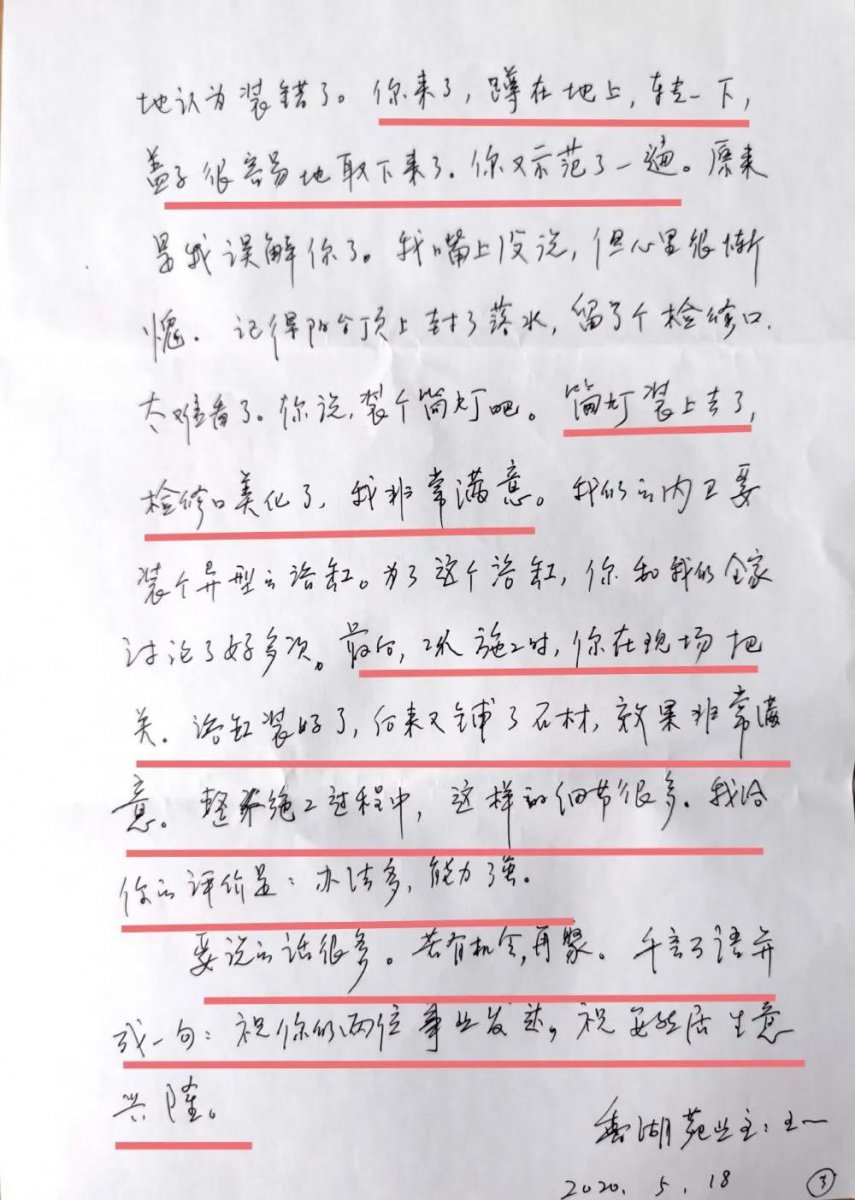 地认为装错了。你来了，蹲在地上，转一下，
盖子很容易地取下来了。你又示范了一遍。原来
是我误解你了。我嘴上没说，但心里很惭
愧。记得阳台顶上封了落水，留了个检修口，
太难看了。你说，装个筒灯吧。筒灯装上去了，
检修口美化了，我非常满意。我们的内卫要
装个异型的浴缸。为了这个浴缸，你和我们全家
讨论了好多次。最后，水施工时，你在现场把
关。浴缸装好了，后来又铺了石材，效果非常满
意。整个施工过程中，这样的细节很多。我给
你的评价是：办法多，能力强。
要说的话很多。若有机会，再聚。千言万语并
成一句：祝你们两位事业发达，祝居生意
兴隆。
香湖苑业主：王一
2020.5.18
③